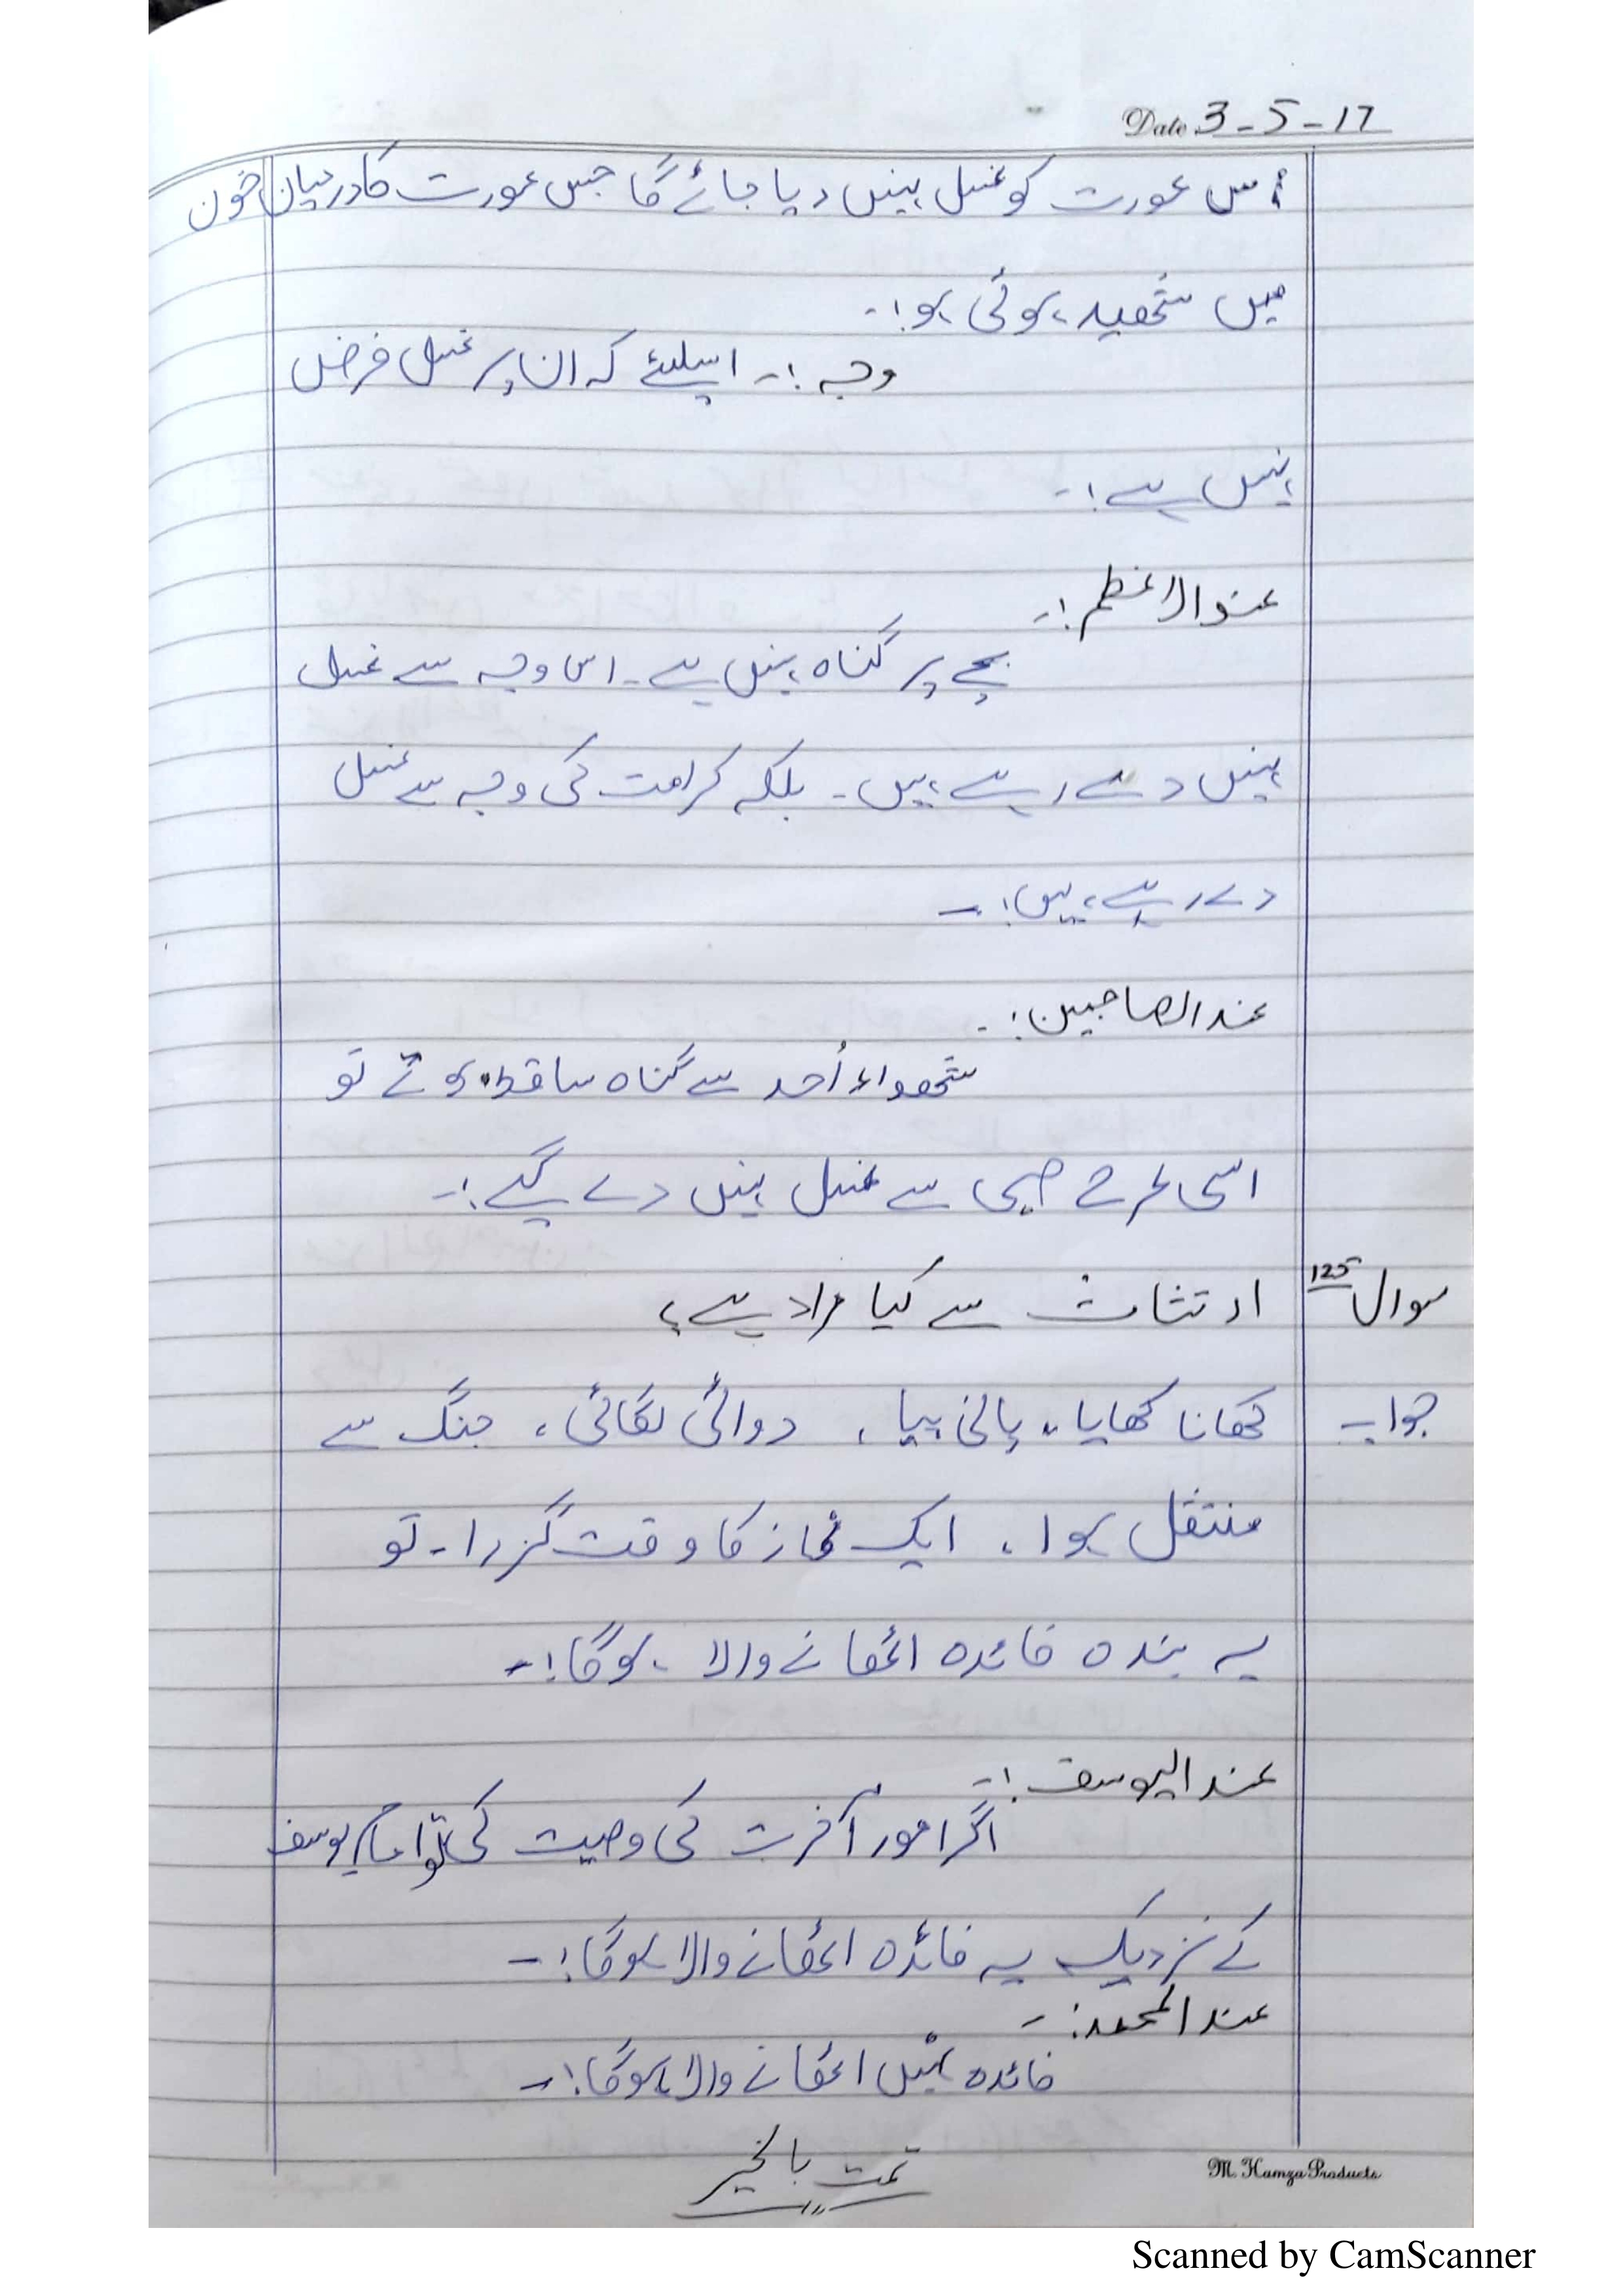 Date 3-5-17
اُس عورت کو غسل نہیں دیا جائے گا جس عورت کا درمیان خون
میں شھید ہوئی ہو!۔
وجہ :۔ اسلیئے کہ ان پر غسل فرض
نہیں ہے!۔
عندالاعظم :۔
بچے پر گناہ نہیں ہے۔ اس وجہ سے غسل
نہیں دے رہے ہیں۔ بلکہ کرامت کی وجہ سے غسل
دے رہے ہیں!۔
عندالصاحبین :۔
شھداء اُحد سے گناہ ساقط ہوتے تو
اسی طرح صبی سے غسل نہیں دے گے!۔
سوال 125 ارتثاث سے کیا مراد ہے؟
جواب کھانا کھایا، پانی پیا، دوائی لگائی، جنگ سے
منتقل ہوا، ایک نماز کا وقت گزرا۔ تو
یہ بندہ فائدہ اٹھانے والا ہوگا!۔
عندالیوسف :۔
اگر امور آخرت کی وصیت کی تو امام یوسف
کے نزدیک یہ فائدہ اٹھانے والا ہوگا!۔
عندالمحمد :۔
فائدہ نہیں اٹھانے والا ہوگا!۔
تمت بالخیر
M. Hamza Products
Scanned by CamScanner